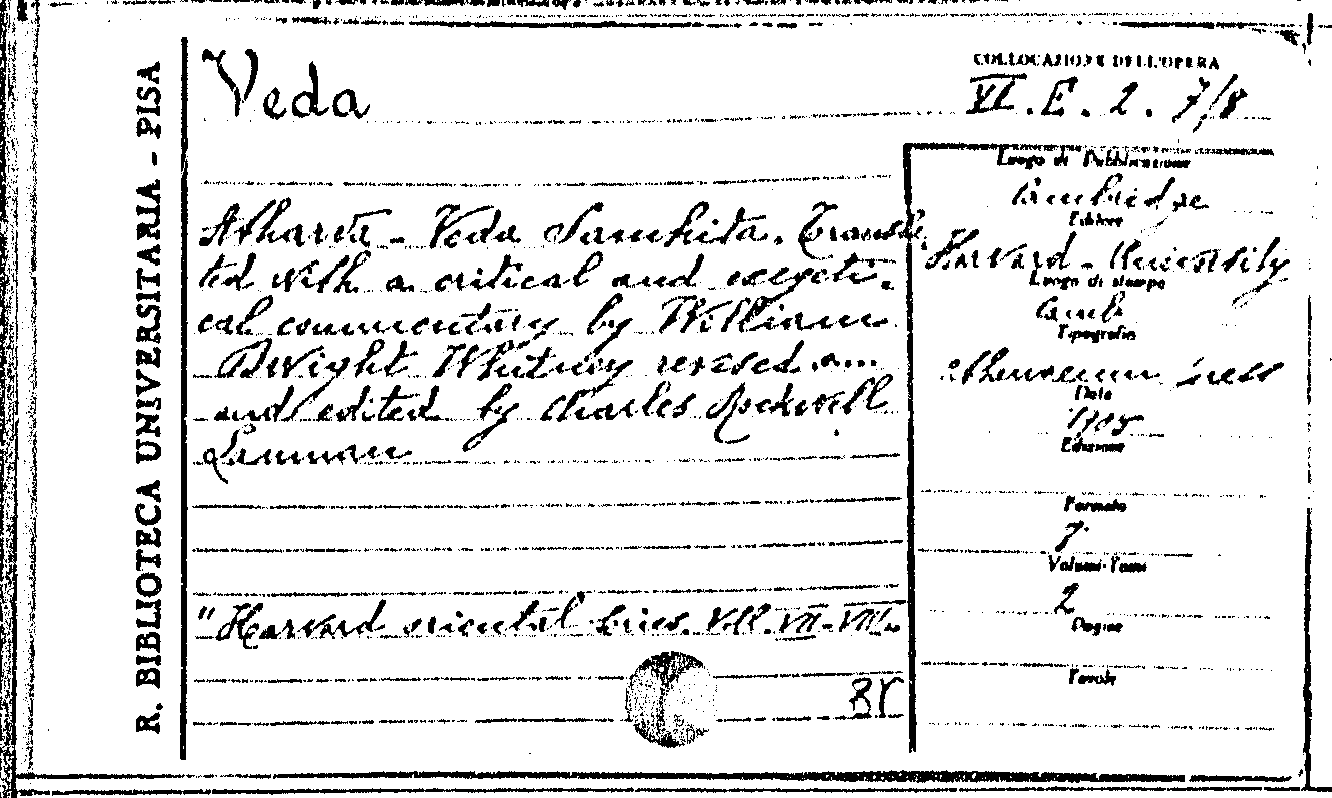 R. BIBLIOTECA UNIVERSITARIA - PISA
Veda
COLLOCAZIONE DELL'OPERA
VI. E. 2. 7/8
Atharva - Veda Samhita. Transla
ted with a critical and exegeti-
cal commentary by William
Dwight Whitney revised
and edited by Charles Rockwell
Lanman
"Harvard oriental Series. Voll. VII-VIII.
BY
Luogo di Pubblicazione
Cambridge
Editore
Harvard - University
Luogo di stampa
Camb
Tipografia
Athenaeum press
Data
1905
Edizione
Formato
Volumi-Tomi
2
Pagine
Tavole